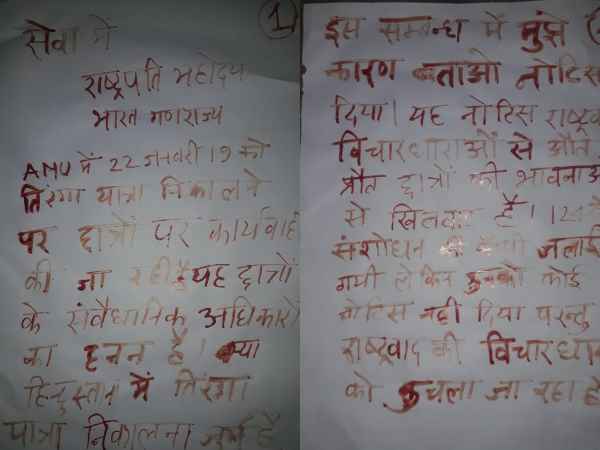 1
सेवा में
राष्ट्रपति महोदय
भारत गणराज्य
AMU में 22 जनवरी 19 को
तिरंगा यात्रा निकालने
पर छात्रों पर कार्यवाही
की जा रही है यह छात्रों
के संवैधानिक अधिकारों
का हनन है। क्या
हिन्दुस्तान में तिरंगा
यात्रा निकालना जुर्म है
इस सम्बन्ध में मुझे
कारण बताओ नोटिस
दिया। यह नोटिस राष्ट्रव
विचारधाराओं से ओत
प्रोत छात्रों की भावनाओ
से खिलवाड़ है। 124
संशोधन की जलाई
गयी लेकिन उनको कोई
नोटिस नही दिया परन्तु
राष्ट्रवाद की विचारधा
को कुचला जा रहा है